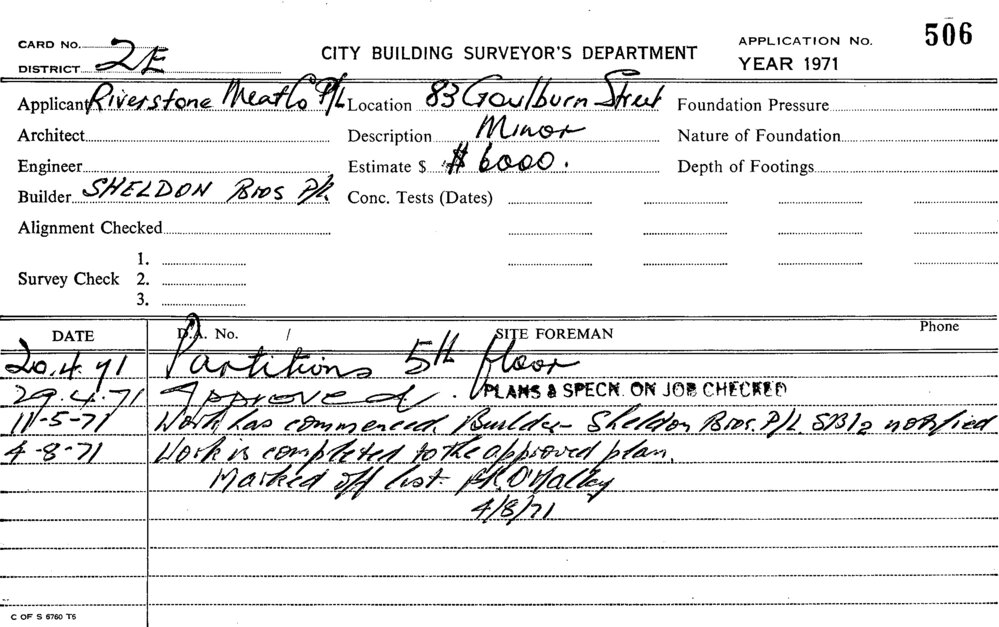 CARD No. CITY BUILDING SURVEYOR'S DEPARTMENT APPLICATION No. 506
DISTRICT 2E YEAR 1971
Applicant Riverstone Meat Co P/L Location 83 Goulburn Street Foundation Pressure
Architect Description Minor Nature of Foundation
Engineer Estimate $ $6000. Depth of Footings
Builder SHELDON Bros P/L. Conc. Tests (Dates)
Alignment Checked
1.
Survey Check 2.
3.
DATE D.A. No. / SITE FOREMAN Phone
20.4.71 Partitions 5th floor
29.4.71 Approved. PLANS & SPECN. ON JOB CHECKED
11-5-71 Work has commenced. Builder- Sheldon Bros. P/L SB12 notified
4-8-71 Work is completed to the approved plan.
Marked off list. O'Malley
4/8/71
C OF S 6760 T5